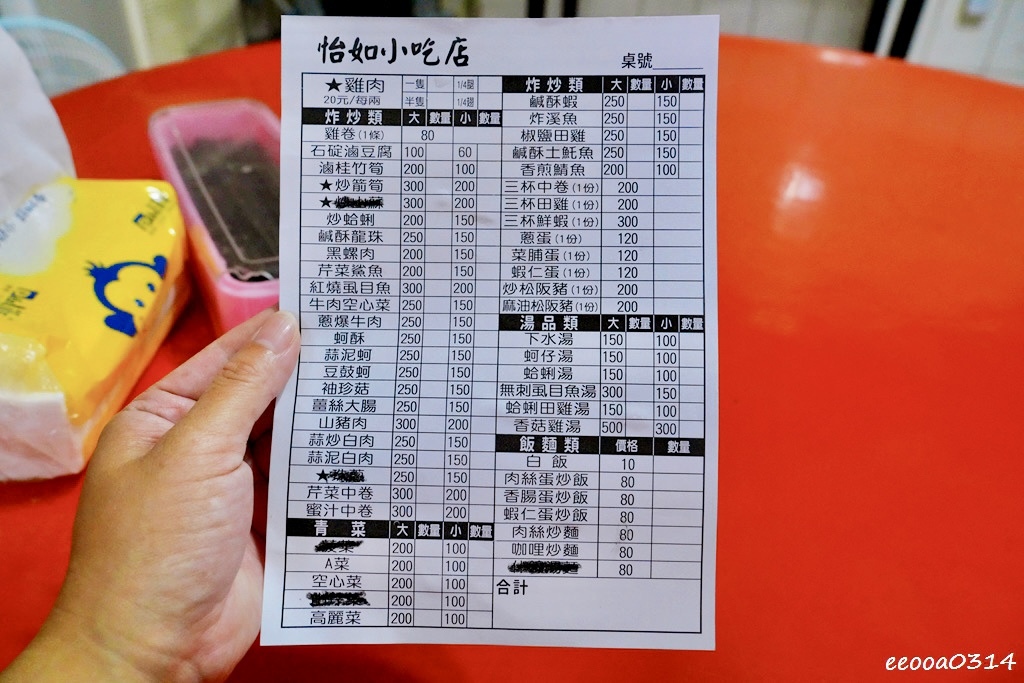 怡如小吃店
桌號
★雞肉 一隻 1/4腿
20元/每兩 半隻 1/4翅
炸炒類 大 數量 小 數量
雞卷(1條) 80
石碇滷豆腐 100 60
滷桂竹筍 200 100
★炒箭筍 300 200
★ 300 200
炒蛤蜊 200 150
鹹酥龍珠 250 150
黑螺肉 200 150
芹菜鯊魚 200 150
紅燒虱目魚 300 200
牛肉空心菜 250 150
蔥爆牛肉 250 150
蚵酥 250 150
蒜泥蚵 250 150
豆鼓蚵 250 150
袖珍菇 250 150
薑絲大腸 250 150
山豬肉 300 200
蒜炒白肉 250 150
蒜泥白肉 250 150
★ 250 150
芹菜中卷 300 200
蜜汁中卷 300 200
青菜 大 數量 小 數量
200 100
A菜 200 100
空心菜 200 100
200 100
高麗菜 200 100
炸炒類 大 數量 小 數量
鹹酥蝦 250 150
炸溪魚 250 150
椒鹽田雞 250 150
鹹酥土魠魚 250 150
香煎鯖魚 200 100
三杯中卷(1份) 200
三杯田雞(1份) 200
三杯鮮蝦(1份) 300
蔥蛋(1份) 120
菜脯蛋(1份) 120
蝦仁蛋(1份) 120
炒松阪豬(1份) 200
麻油松阪豬(1份) 200
湯品類 大 數量 小 數量
下水湯 150 100
蚵仔湯 150 100
蛤蜊湯 150 100
無刺虱目魚湯 300 150
蛤蜊田雞湯 150 100
香菇雞湯 500 300
飯麵類 價格 數量
白飯 10
肉絲蛋炒飯 80
香腸蛋炒飯 80
蝦仁蛋炒飯 80
肉絲炒麵 80
咖哩炒麵 80
80
合計
eeooa0314